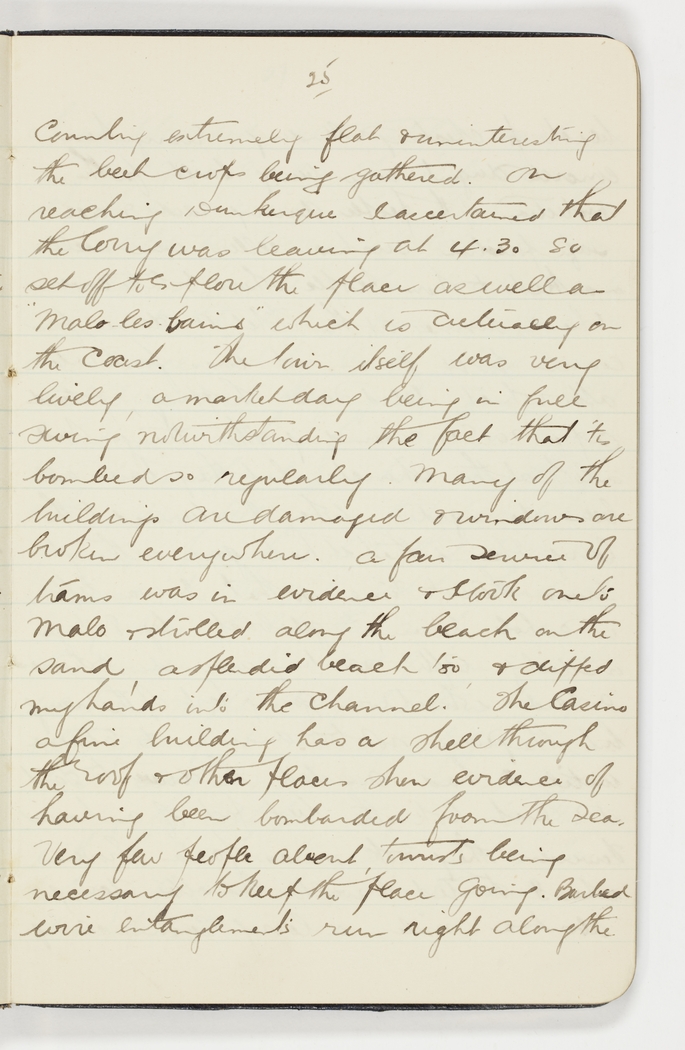 25
Country extremely flat & uninteresting
the beet crops being gathered. On
reaching Dunkerque I ascertained that
the lorry was leaving at 4.30 so
set off to explore the place as well as
"Malo les bains" which is actually on
the coast. The town itself was very
lively, a market day being in full
swing notwithstanding the fact that 'tis
bombed so regularly. Many of the
buildings are damaged & windows are
broken everywhere. A fair service of
trams was in evidence & I took one to
Malo & strolled along the beach on the
sand, a splendid beach too & dipped
my hands into the channel. The Casino
a fine building has a shell through
the roof & other places show evidence of
having been bombarded from the sea.
Very few people about, tourists being
necessary to keep the place going. Barbed
wire entanglements run right along the